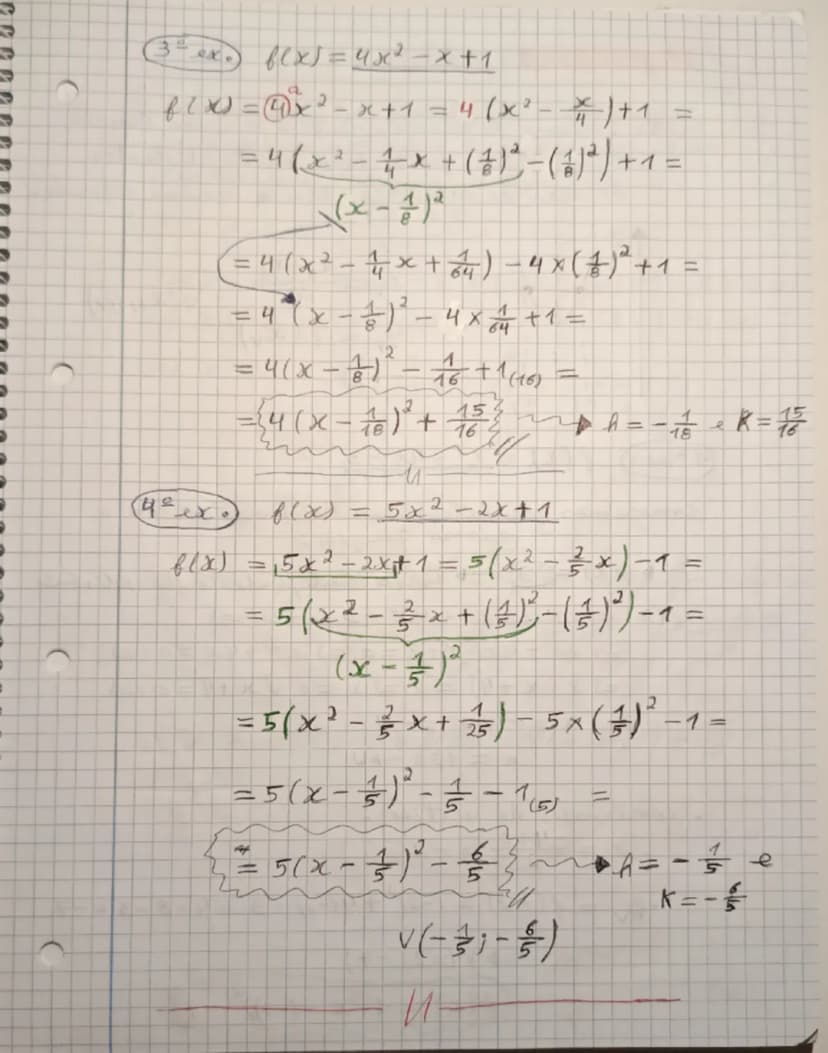 3º ex. f(x) = 4x² - x + 1
f(x) = 4x² - x + 1 = 4 (x² - x/4) + 1 =
= 4 (x² - 1/4 x + (1/8)² - (1/8)²) + 1 =
(x - 1/8)²
= 4 (x² - 1/4 x + 1/64) - 4 × (1/8)² + 1 =
= 4 (x - 1/8)² - 4 × 1/64 + 1 =
= 4(x - 1/8)² - 1/16 + 1(16) =
= 4 (x - 1/18)² + 15/16 → h = - 1/18 e K = 15/16
4º ex. f(x) = 5x² - 2x + 1
f(x) = 5x² - 2x + 1 = 5(x² - 2/5 x) - 1 =
= 5 (x² - 2/5 x + (1/5)² - (1/5)²) - 1 =
(x - 1/5)²
= 5(x² - 2/5 x + 1/25) - 5 × (1/5)² - 1 =
= 5(x - 1/5)² - 1/5 - 1(5) =
= 5(x - 1/5)² - 6/5 → h = - 1/5 e
K = - 6/5
V(- 1/5 ; - 6/5)